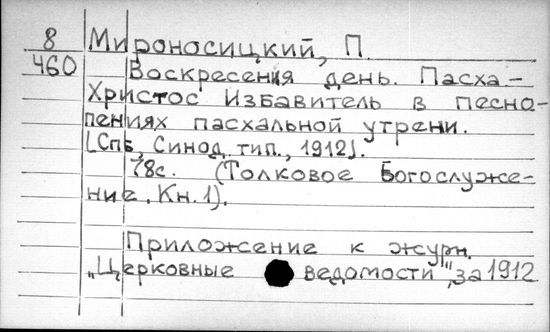 8
460
Мироносицкий, П.
Воскресения день. Пасха-
Христос Избавитель в песно-
пениях пасхальной утрени.
[Спб, Синод. тип., 1912].
78с. (Толковое Богослуже-
ние. Кн. 1).
Приложение к журн.
„Церковные ведомости", за 1912